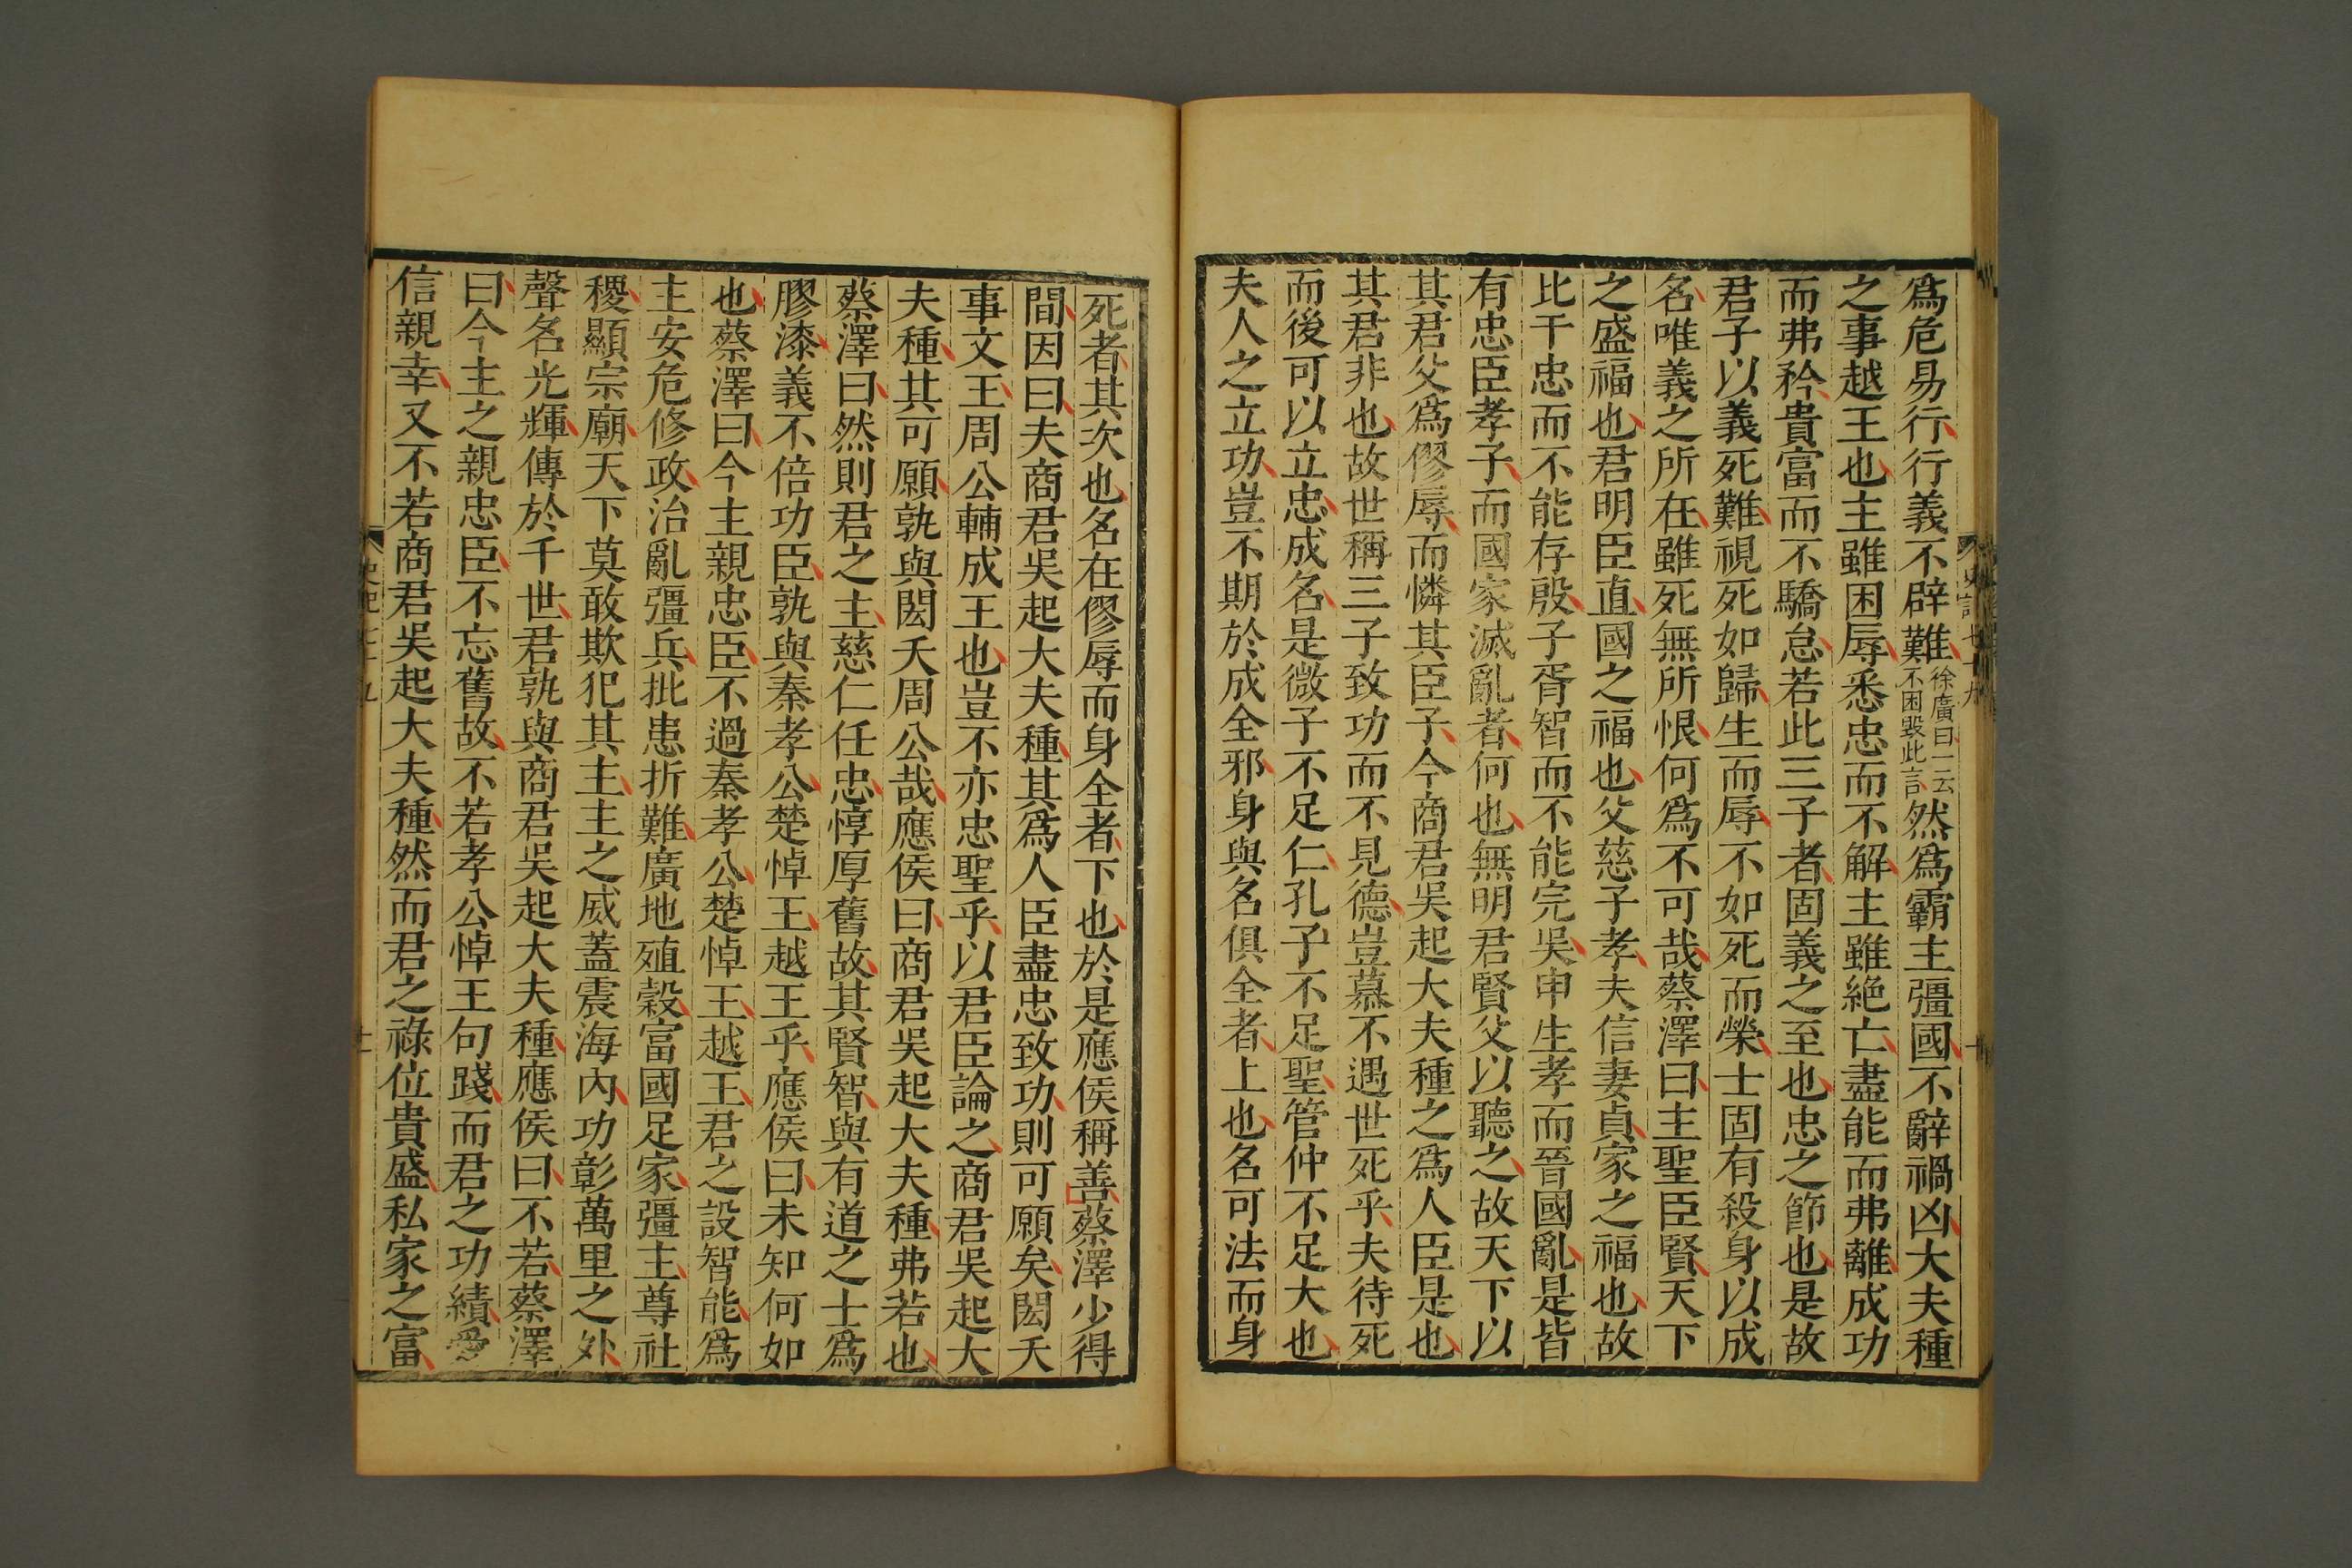 爲危易行行義不辟難徐廣曰一云不困毀此言然爲霸主彊國不辭禍凶大夫種
之事越王也主雖困辱悉忠而不解主雖絶亡盡能而弗離成功
而弗矜貴富而不驕怠若此三子者固義之至也忠之節也是故
君子以義死難視死如歸生而辱不如死而榮士固有殺身以成
名唯義之所在雖死無所恨何爲不可哉蔡澤曰主聖臣賢天下
之盛福也君明臣直國之福也父慈子孝夫信妻貞家之福也故
比干忠而不能存殷子胥智而不能完吳申生孝而晉國亂是皆
有忠臣孝子而國家滅亂者何也無明君賢父以聽之故天下以
其君父爲僇辱而憐其臣子今商君吳起大夫種之爲人臣是也
其君非也故世稱三子致功而不見德豈慕不遇世死乎夫待死
而後可以立忠成名是微子不足仁孔子不足聖管仲不足大也
夫人之立功豈不期於成全邪身與名俱全者上也名可法而身
史記七十九
十
死者其次也名在僇辱而身全者下也於是應侯稱善蔡澤少得
間因曰夫商君吳起大夫種其爲人臣盡忠致功則可願矣閎夭
事文王周公輔成王也豈不亦忠聖乎以君臣論之商君吳起大
夫種其可願孰與閎夭周公哉應侯曰商君吳起大夫種弗若也
蔡澤曰然則君之主慈仁任忠惇厚舊故其賢智與有道之士爲
膠漆義不倍功臣孰與秦孝公楚悼王越王乎應侯曰未知何如
也蔡澤曰今主親忠臣不過秦孝公楚悼王越王君之設智能爲
主安危修政治亂彊兵批患折難廣地殖穀富國足家彊主尊社
稷顯宗廟天下莫敢欺犯其主主之威蓋震海內功彰萬里之外
聲名光輝傳於千世君孰與商君吳起大夫種應侯曰不若蔡澤
曰今主之親忠臣不忘舊故不若孝公悼王句踐而君之功績愛
信親幸又不若商君吳起大夫種然而君之祿位貴盛私家之富